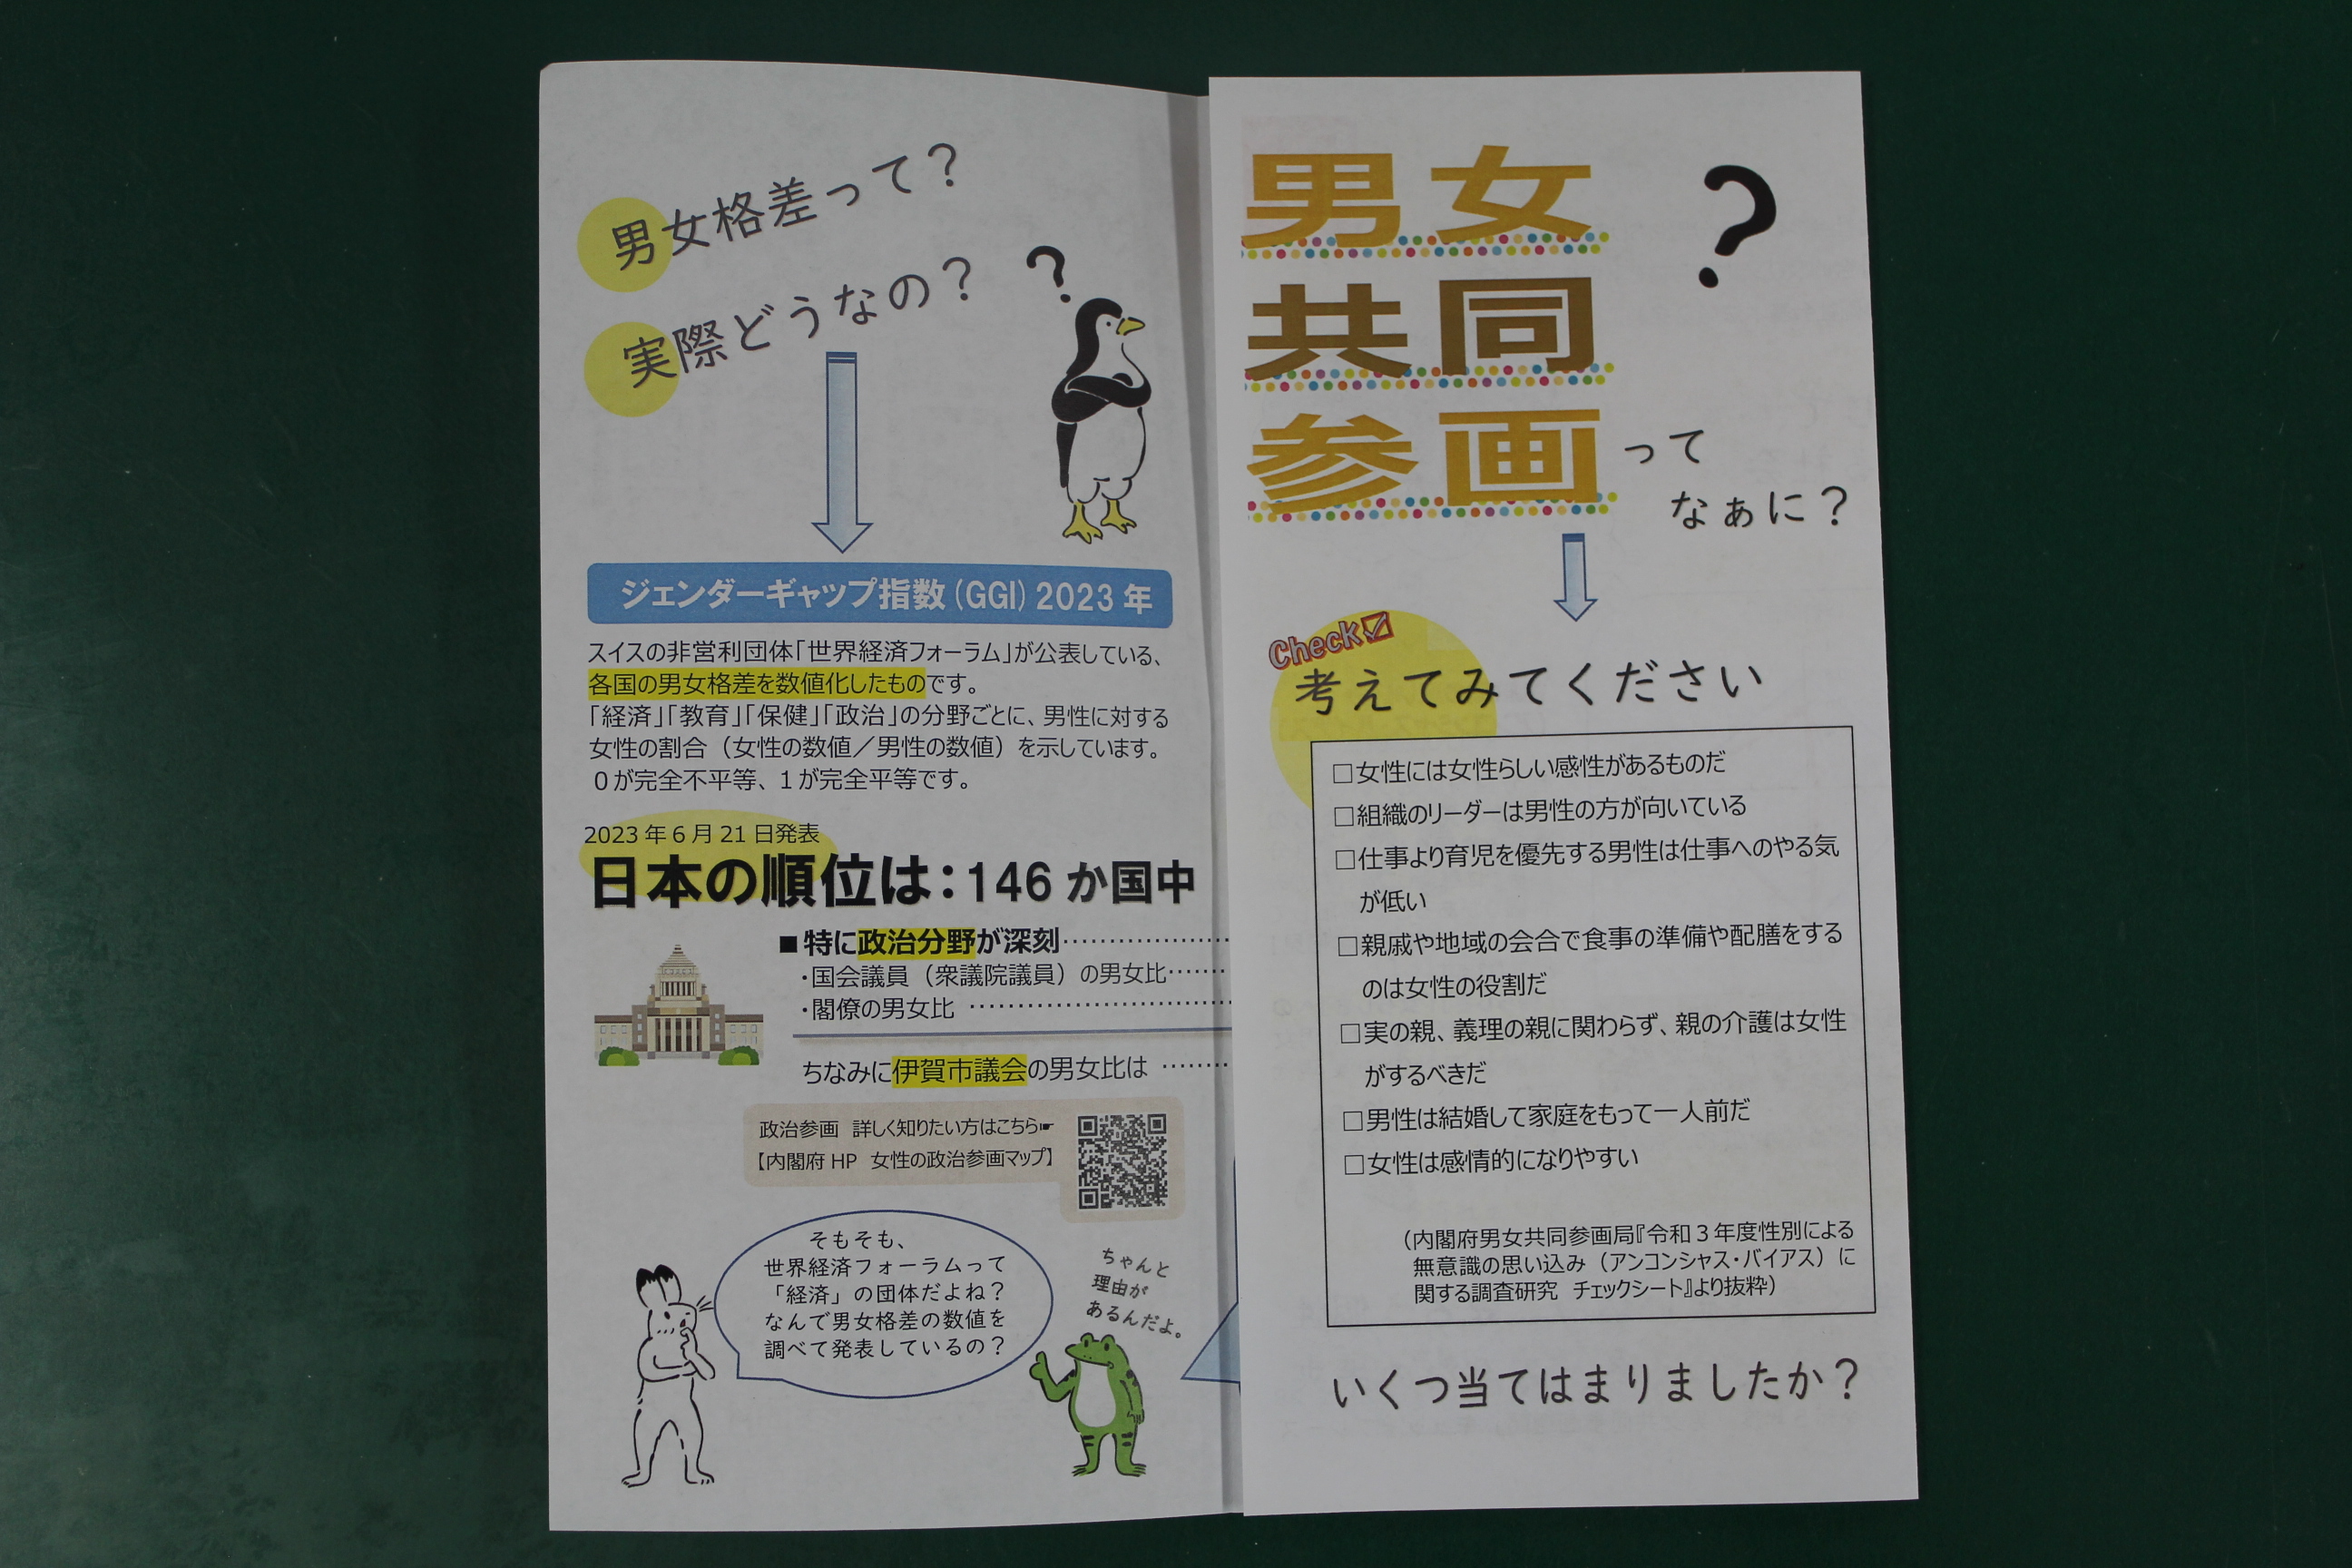 男女格差って？
実際どうなの？
?
ジェンダーギャップ指数(GGI) 2023 年
スイスの非営利団体｢世界経済フォーラム｣が公表している、
各国の男女格差を数値化したものです。
｢経済｣｢教育｣｢保健｣｢政治｣の分野ごとに、男性に対する
女性の割合（女性の数値／男性の数値）を示しています。
０が完全不平等、１が完全平等です。
2023 年 6 月 21 日発表
日本の順位は：146 か国中
■特に政治分野が深刻…………………
・国会議員（衆議院議員）の男女比‥‥‥
・閣僚の男女比 ……………………………
ちなみに伊賀市議会の男女比は ………
政治参画　詳しく知りたい方はこちら☛
【内閣府 HP　女性の政治参画マップ】
そもそも、
世界経済フォーラムって
「経済」の団体だよね？
なんで男女格差の数値を
調べて発表しているの？
ちゃんと
理由が
あるんだよ。
男女
共同
参画って
なぁに？
?
Check☑
考えてみてください
□女性には女性らしい感性があるものだ
□組織のリーダーは男性の方が向いている
□仕事より育児を優先する男性は仕事へのやる気
が低い
□親戚や地域の会合で食事の準備や配膳をする
のは女性の役割だ
□実の親、義理の親に関わらず、親の介護は女性
がするべきだ
□男性は結婚して家庭をもって一人前だ
□女性は感情的になりやすい
（内閣府男女共同参画局『令和３年度性別による
無意識の思い込み（アンコンシャス・バイアス）に
関する調査研究　チェックシート』より抜粋）
いくつ当てはまりましたか？